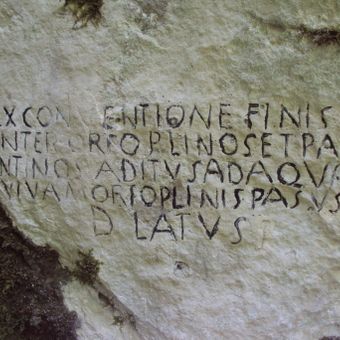 EX CONVENTIONE FINIS
INTER ORTOPLINOS ET PA
NTINOS ADITVS AD AQVA
VIVAM ORTOPLINIS PASVS
D LATVS I